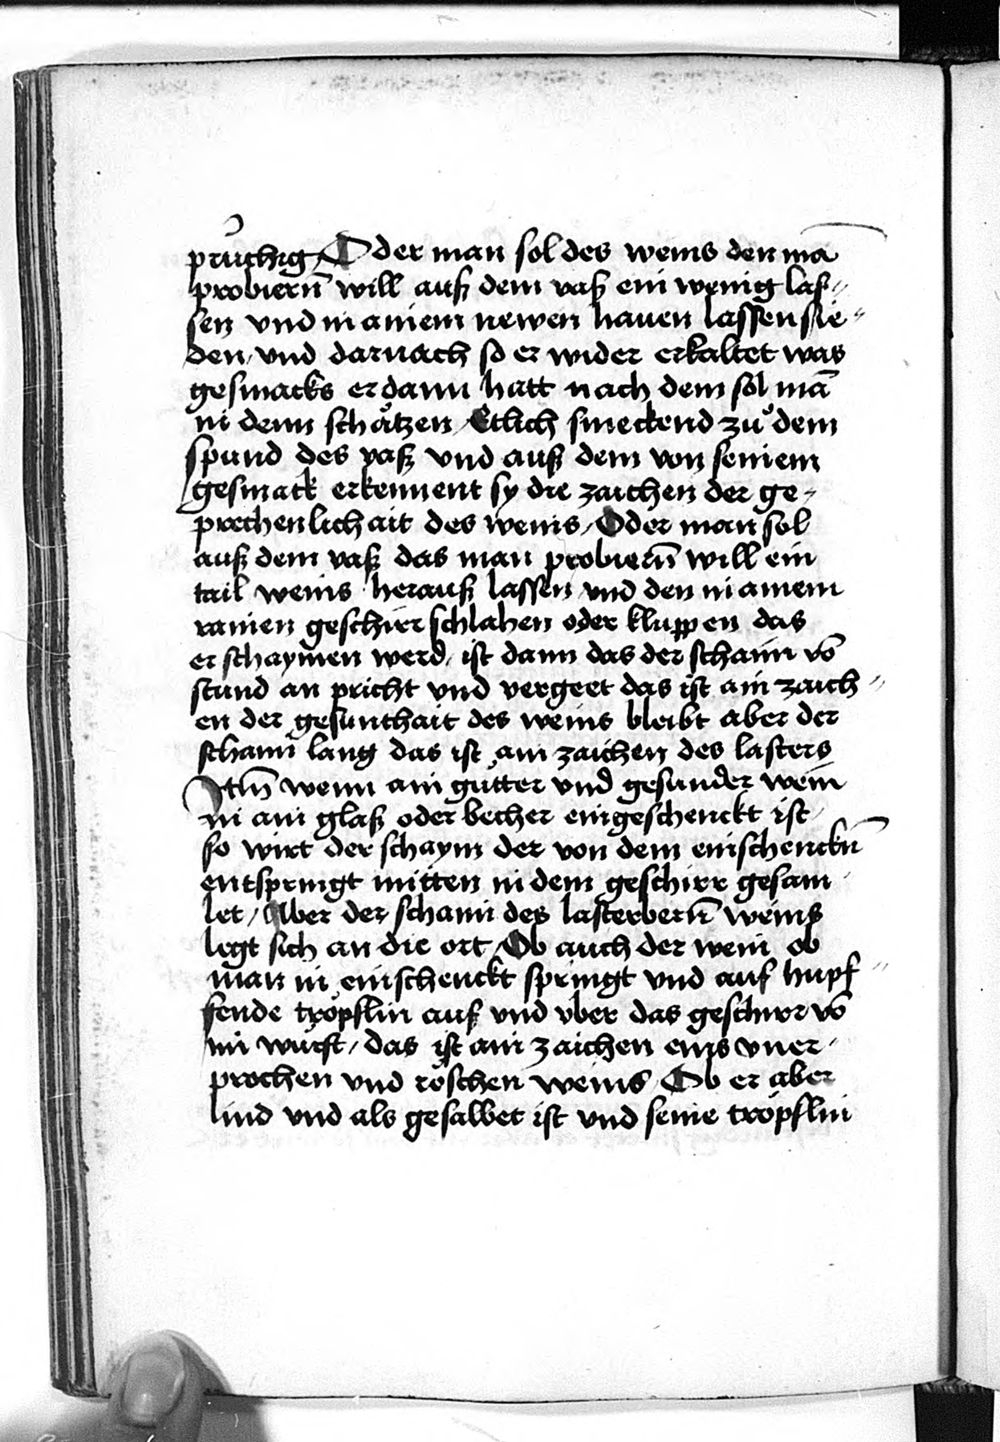 prüchig / Oder man sol des weins den mā
probiern̄ will auß dem vaß ein wenig las⸗
sen vnd in ainem newen haven lassen sie⸗
den / vnd darnach so er wider erkaltet was
gesmacks er dann hatt nach dem sol mā
in denn schätzen / Etlich smeckend zů dem
spund des vaß vnd auß dem von seinem
gesmack erkennent sy die zaichen der ge⸗
prechenlichait des weins / Oder man sol
auß dem vaß das man probiern̄ will ein
tail weins herauß lassen vnd den in ainem
rainen geschirr schlahen oder kluppen das
er schaymen werd / ist dann das der schaim vō
stund an pricht vnd vergeet das ist ain zaich⸗
en der gesunthait des weins bleibt aber der
schaim lang das ist ain zaichen des lasters
Itm̄ wenn ain gůtter vnd gesunder wein
in ain glaß oder becher eingeschenckt ist /
so wirt der schaym der von dem einschenckn̄
entspringt mitten in dem geschirr gesam⸗
let / Aber der schaim des lasterbern̄ weins
legt sich an die ort / Ob auch der wein ob
man in einschenckt springt vnd auf hupf⸗
fende tröpflin auf vnd vber das geschirr vō
im würft / das ist ain zaichen eins vner⸗
prochen vnd röschen weins / Ob er aber
lind vnd als gesalbet ist vnd seine tröpflin